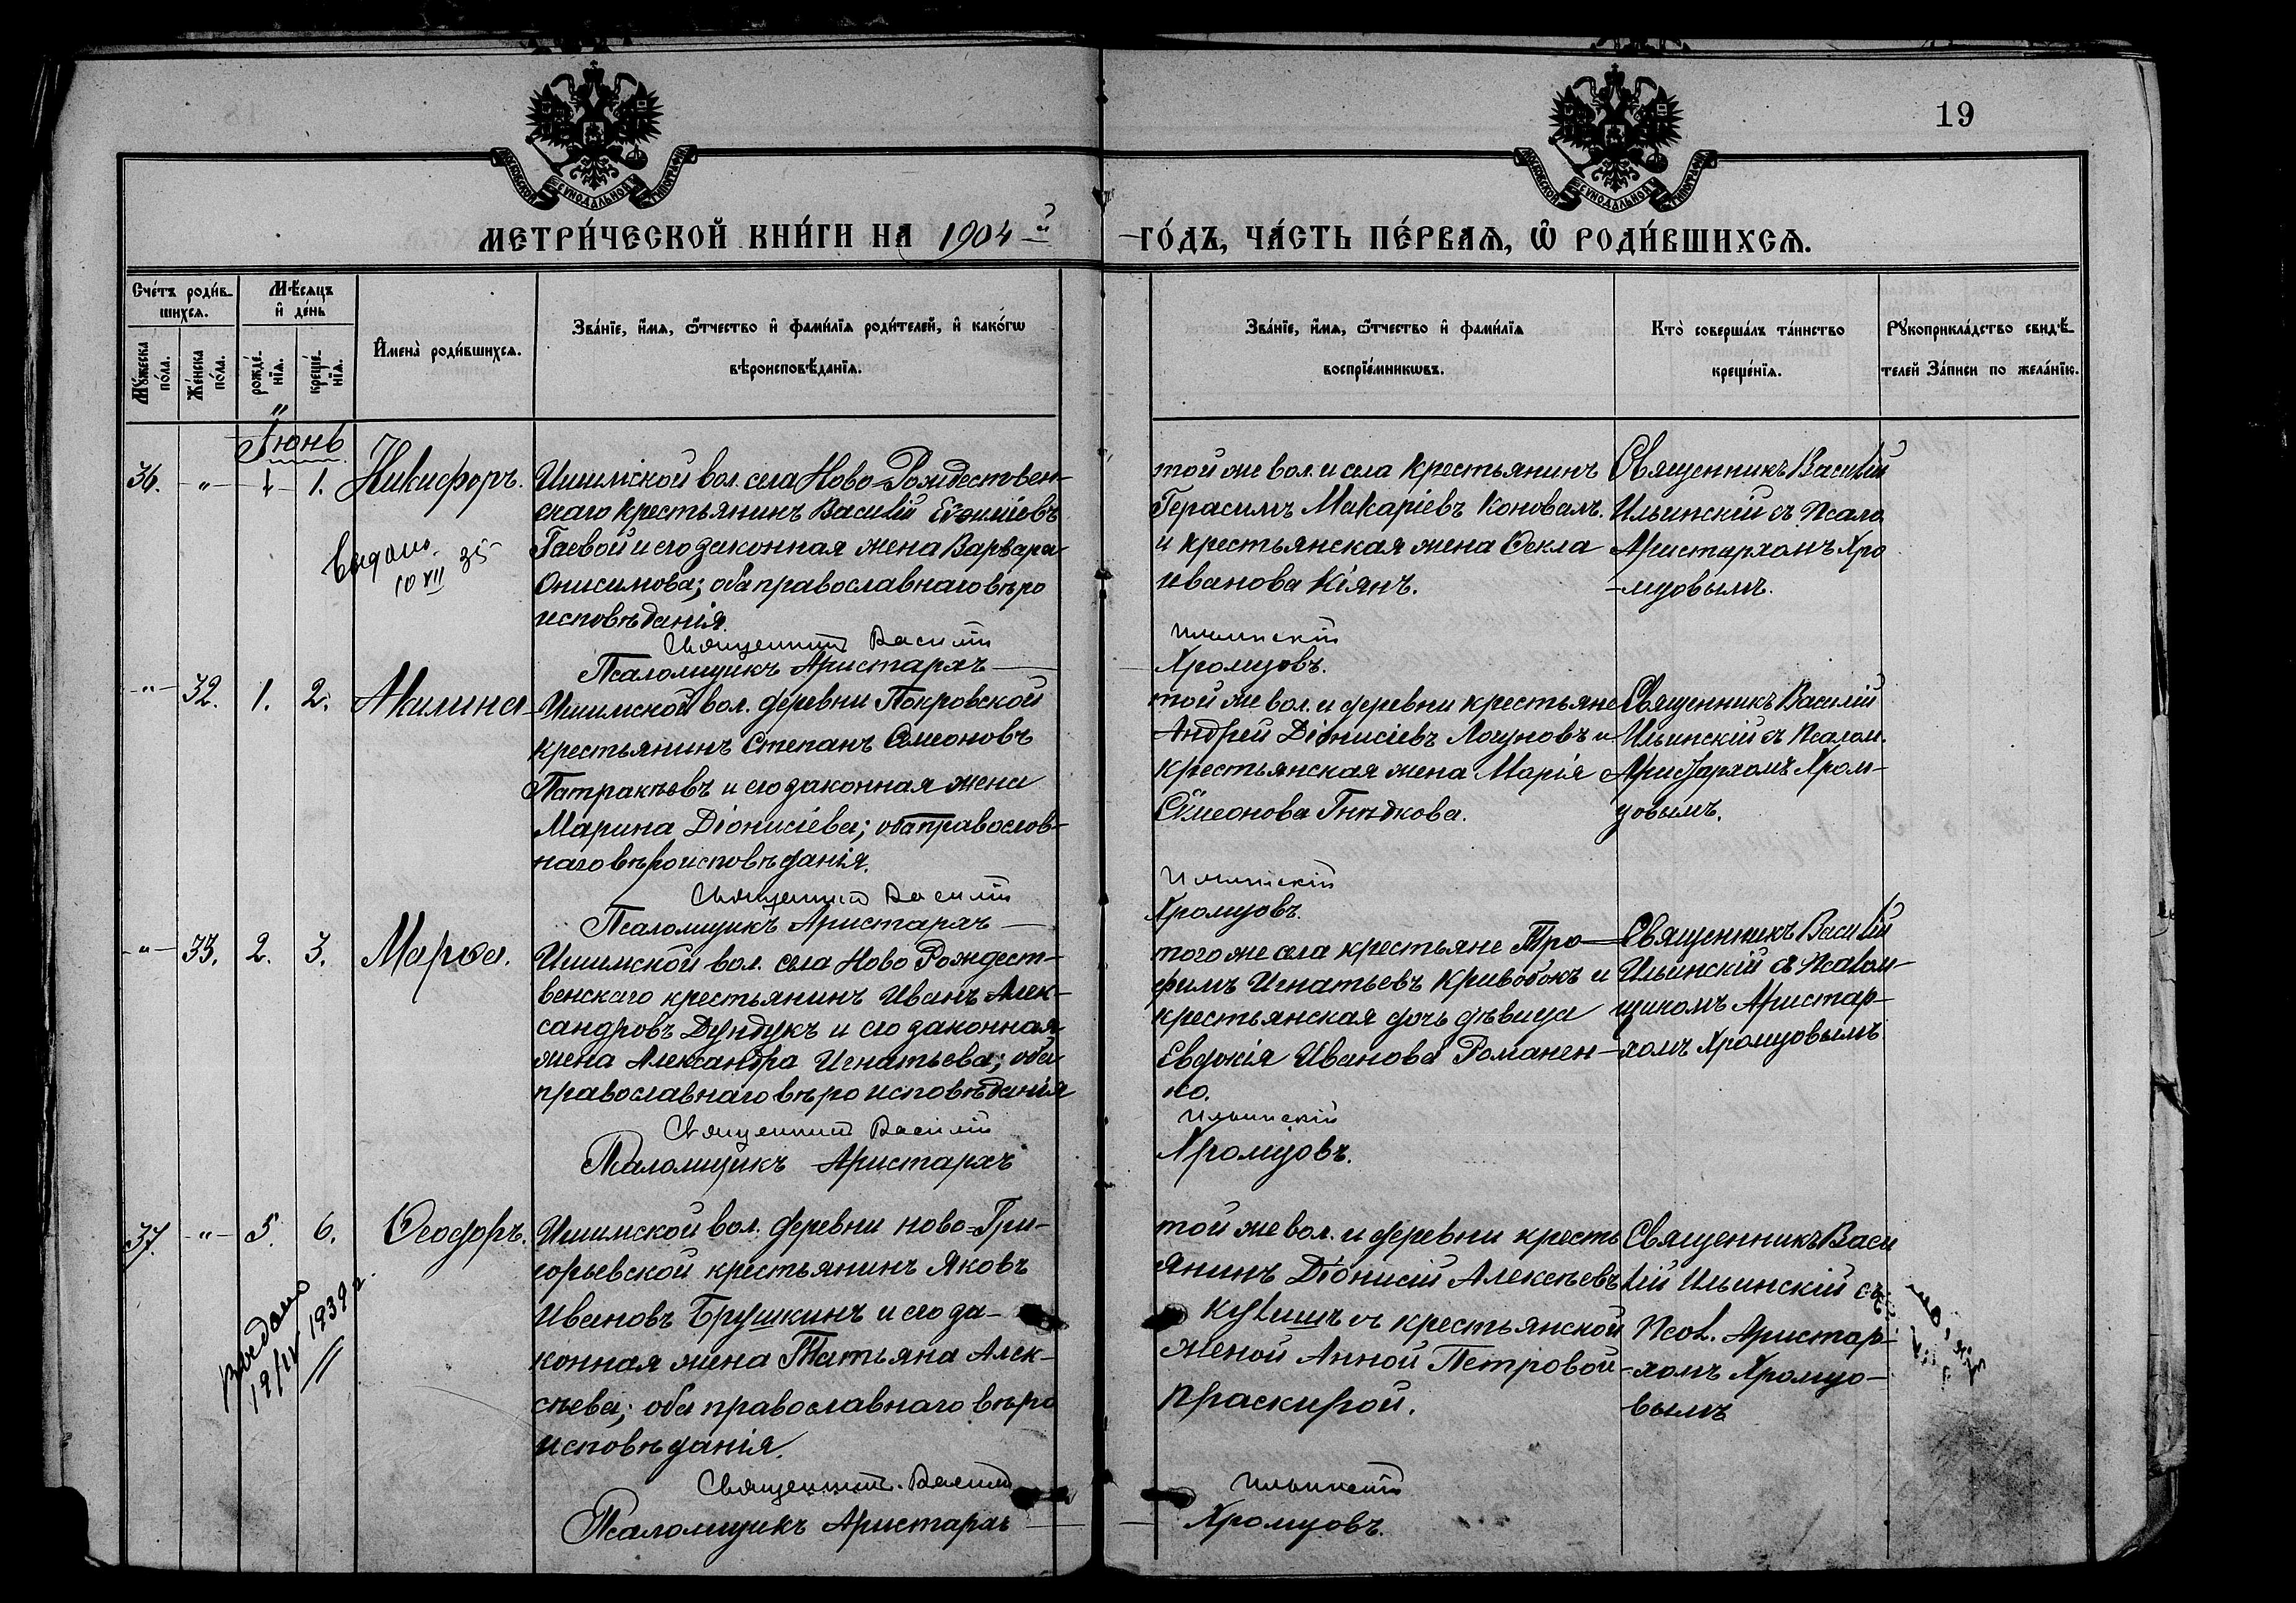 19
МЕТРИ́ЧЕСКОЙ КНИ́ГИ НА 1904-й
ГО́ДЪ, ЧА́СТЬ ПЕ́РВАѦ, Ѽ РОДИ́ВШИХСѦ.
Сче́тъ роди́в-
шихсѧ.
Му́жеска
по́ла.
Же́нска
по́ла.
Мѣ́сяцъ
и҆ де́нь
рожде́-
нїѧ.
креще́-
нїѧ.
И҆мена̀ роди́вшихсѧ.
Зва́нїе, и҆́мѧ, ѻ҆́тчество и҆ фами́лїѧ роди́телей, и҆ како́гѡ
вѣроисповѣ́данїѧ.
Зва́нїе, и҆́мѧ, ѻ҆́тчество и҆ фами́лїѧ
воспрїе́мникѡвъ.
Кто̀ соверша́лъ та́инство
креще́нїѧ.
Рꙋкоприкла́дство свидѣ́-
телей За́писи по жела́нїю.
Іюнь
36. -"- 1 1. Никифоръ.
Ишимской вол. села Ново-Рождествен-
скаго крестьянинъ Василій Евѳиміевъ
Гаевой и его законная жена Варвара
Онисимова; оба православнаго вѣро
исповѣданія.
Священникъ Василій
Псаломщикъ Аристархъ
той же вол. и села крестьянинъ
Герасимъ Макаріевъ Коновалъ.
и крестьянская жена Ѳекла
Иванова Кіянъ.
Ильинскій
Хромцовъ.
Священникъ Василій
Ильинскій съ Псало
Аристархомъ Хро
-мцовымъ.
Выдано
10 XII 35
-"- 32. 1. 2. Акилина
Ишимской вол. деревни Покровской
крестьянинъ Степанъ Симеоновъ
Патракѣевъ и его законная жена
Марина Діонисіева; оба православ-
наго вѣроисповѣданія.
Священникъ Василій
Псаломщикъ Аристархъ
той же вол. и деревни крестьяне
Андрей Діонисіевъ Логуновъ и
крестьянская жена Марія
Симеонова Гнѣдкова.
Ильинскій
Хромцовъ.
Священникъ Василій
Ильинскій съ Псалом.
Аристархомъ Хром-
цовымъ.
-"- 33. 2. 3. Марѳа.
Ишимской вол. села Ново Рождест-
венскаго крестьянинъ Иванъ Алек-
сандровъ Дундукъ и его законная
жена Александра Игнатьева; оба
православнаго вѣро исповѣданія
Священникъ Василій
Псаломщикъ Аристархъ
того же села крестьяне Тро-
фимъ Игнатьевъ Кривобокъ и
крестьянская дочь дѣвица
Евдокія Иванова Романен-
ко.
Ильинскій
Хромцовъ.
Священникъ Василій
Ильинскій съ Псалом-
щикомъ Аристар-
хомъ Хромцовымъ
37. -"- 5. 6. Ѳеодоръ.
Ишимской вол. деревни Ново-Гри-
горьевской крестьянинъ Яковъ
Ивановъ Брушкинъ и его за-
конная жена Татьяна Алек-
сѣева; оба православнаго вѣро
исповѣданія.
Священникъ Василій
Псаломщикъ Аристархъ
той же вол. и деревни кресть
янинъ Діонисій Алексѣевъ
Кулишъ съ крестьянской
женой Анной Петровой
Праскурой.
Ильинскій
Хромцовъ.
Священникъ Васи
лій Ильинскій съ
Псал. Аристар-
хомъ Хромцо-
вымъ
Выдано
19/IV 1939 г.